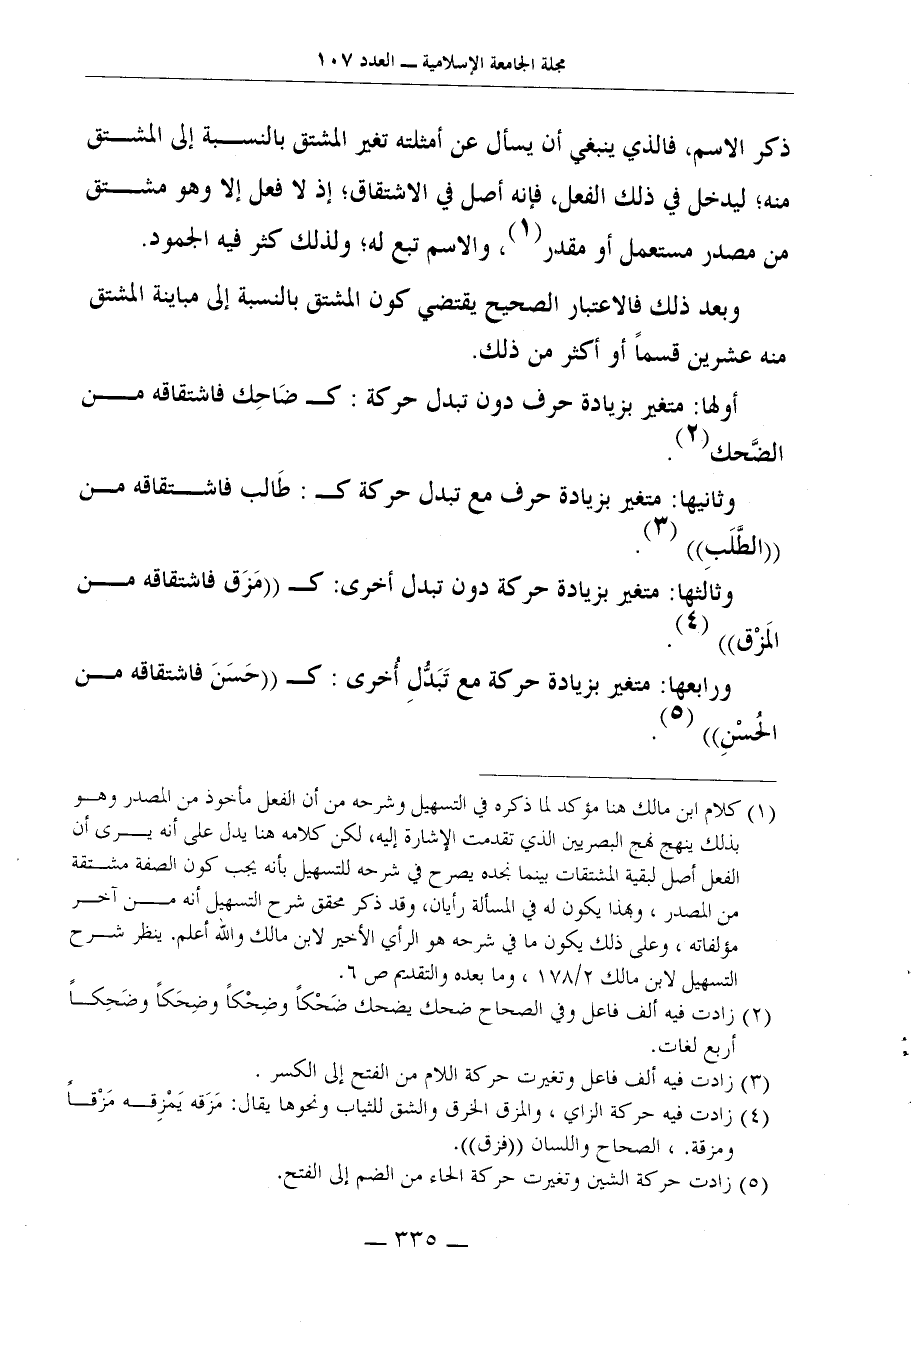 مجلة الجامعة الإسلامية ــ العدد ١٠٧
ذكر الاسم، فالذي ينبغي أن يسأل عن أمثلته تغير المشتق بالنسبة إلى المشتق
منه؛ ليدخل في ذلك الفعل، فإنه أصل في الاشتقاق؛ إذ لا فعل إلا وهو مشتق
من مصدر مستعمل أو مقدر(١)، والاسم تبع له؛ ولذلك كثر فيه الجمود.
وبعد ذلك فالاعتبار الصحيح يقتضي كون المشتق بالنسبة إلى مباينة المشتق
منه عشرين قسماً أو أكثر من ذلك.
أولها: متغير بزيادة حرف دون تبدل حركة : كـ ضَاحِك فاشتقاقه من
الضَّحك(٢).
وثانيها: متغير بزيادة حرف مع تبدل حركة كـ : طَالب فاشتقاقه من
((الطَّلَبِ)) (٣).
وثالثها: متغير بزيادة حركة دون تبدل أخرى: كـ ((مَزَق فاشتقاقه من
المَزْق)) (٤).
ورابعها: متغير بزيادة حركة مع تَبَدُّلِ أُخرى : كـ ((حَسَنَ فاشتقاقه من
الحُسْنِ)) (٥).
(١) كلام ابن مالك هنا مؤكد لما ذكره في التسهيل وشرحه من أن الفعل مأخوذ من المصدر وهو
بذلك ينهج نهج البصريين الذي تقدمت الإشارة إليه، لكن كلامه هنا يدل على أنه يرى أن
الفعل أصل لبقية المشتقات بينما نجده يصرح في شرحه للتسهيل بأنه يجب كون الصفة مشتقة
من المصدر ، وبهذا يكون له في المسألة رأيان، وقد ذكر محقق شرح التسهيل أنه من آخر
مؤلفاته ، وعلى ذلك يكون ما في شرحه هو الرأي الأخير لابن مالك والله أعلم. ينظر شرح
التسهيل لابن مالك ١٧٨/٢ ، وما بعده والتقديم ص ٦.
(٢) زادت فيه ألف فاعل وفي الصحاح ضحك يضحك ضَحْكاً وضِحْكاً وضِحَكاً وضَحِكاً
أربع لغات.
(٣) زادت فيه ألف فاعل وتغيرت حركة اللام من الفتح إلى الكسر .
(٤) زادت فيه حركة الزاي ، والمزق الخرق والشق للثياب ونحوها يقال: مَزَقه يَمْزِقه مَزْقاً
ومزقة. ، الصحاح واللسان ((فزق)).
(٥) زادت حركة الشين وتغيرت حركة الحاء من الضم إلى الفتح.
ــ ٣٣٥ ــ